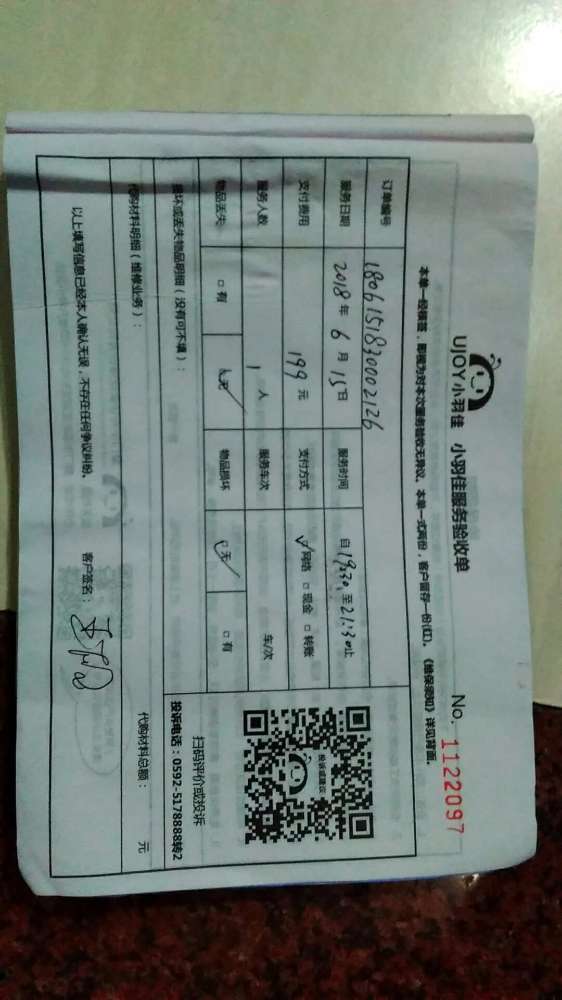 UJOY小羽佳 小羽佳服务验收单 No. 1122097
本单一经接签，即视为对本次服务验收无异议。本单一式两份，客户留存一份(红)。《维保须知》详见背面。
订单编号 1806151830002126
服务日期 2018 年 6 月 15 日 服务时间 自 19:30 至 21:30 止
支付费用 199 元 支付方式 ☑ 网络 □ 现金 □ 转账
服务人数 1 人 服务车次 车/次
物品丢失 □ 有 ☑ 无 物品损坏 ☑ 无 □ 有
损坏或丢失物品明细（没有可不填）：
代购材料明细（维修业务）： 代购材料总额： 元
以上填写信息已经本人确认无误，不存在任何争议纠纷。 客户签名：
投诉或建议
扫码评价或投诉
投诉电话：0592-5178888转2